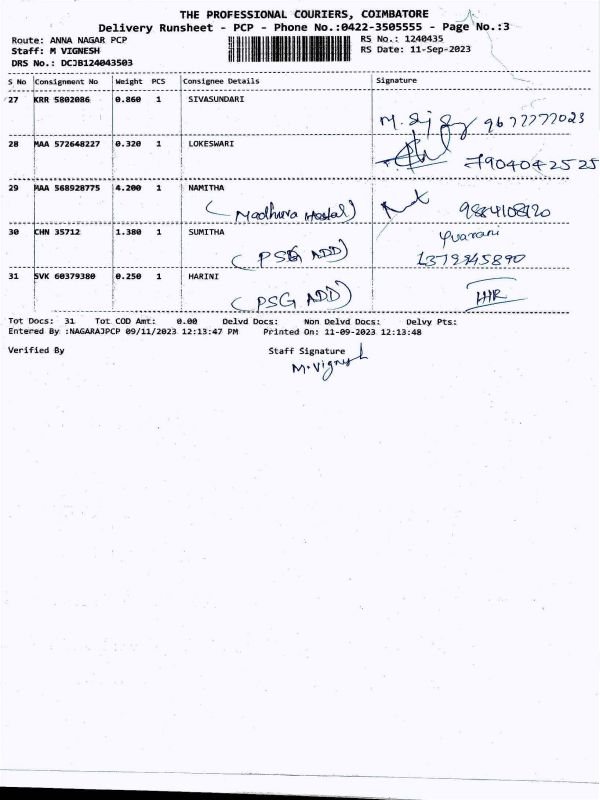 THE PROFESSIONAL COURIERS, COIMBATORE
Delivery Runsheet - PCP - Phone No.:0422-3505555 - Page No.:3
Route: ANNA NAGAR PCP RS No.: 1240435
Staff: M VIGNESH RS Date: 11-Sep-2023
DRS No.: DCJB124043503
S No Consignment No Weight PCS Consignee Details Signature
27 KRR 5802086 0.860 1 SIVASUNDARI
28 MAA 572648227 0.320 1 LOKESWARI
7904042525
29 MAA 568928775 4.200 1 NAMITHA
(Madhura Hostal)
30 CHN 35712 1.380 1 SUMITHA
(PSG ADD)
31 SVK 60379380 0.250 1 HARINI
(PSG ADD)
Tot Docs: 31 Tot COD Amt: 0.00 Delvd Docs: Non Delvd Docs: Delvy Pts:
Entered By :NAGARAJPCP 09/11/2023 12:13:47 PM Printed On: 11-09-2023 12:13:48
Verified By Staff Signature
M.Vignesh